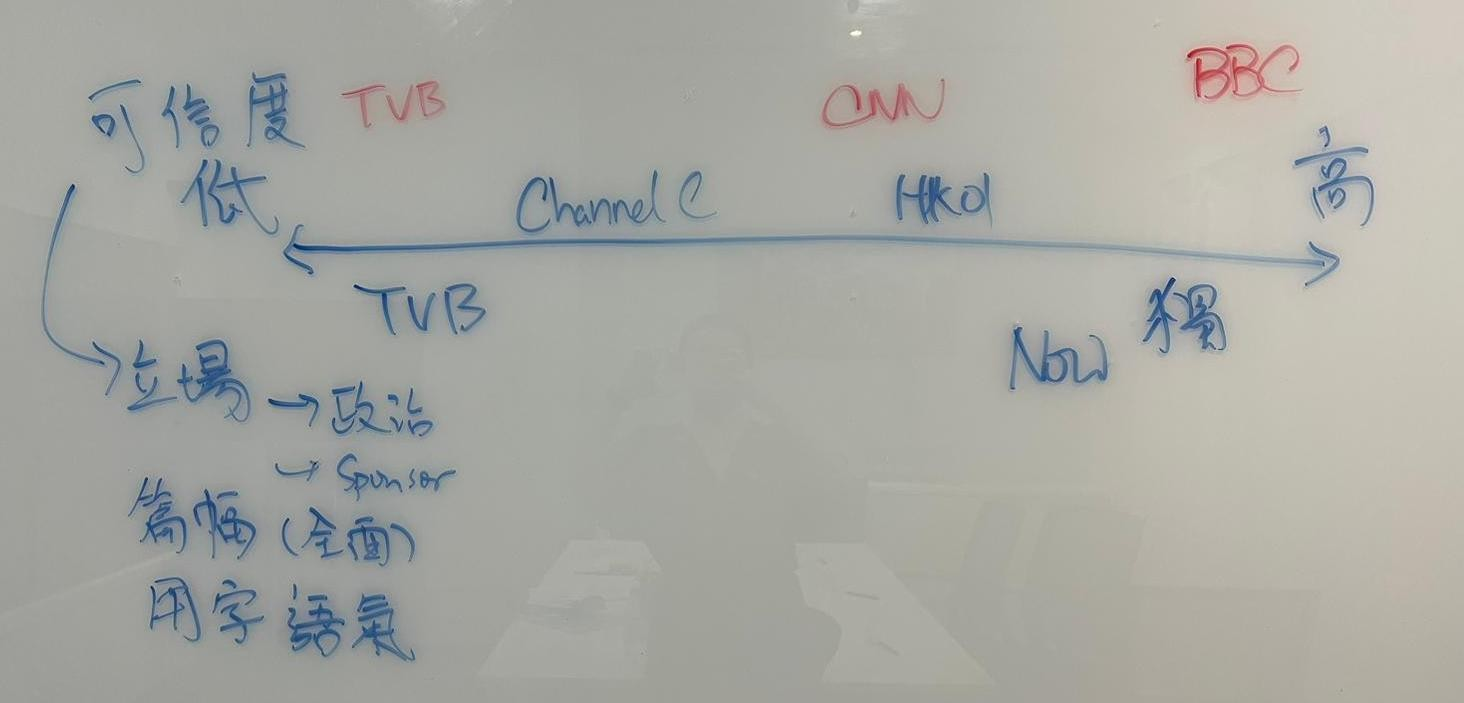 可信度 TVB CNN BBC
低 Channel C HK01 高
TVB Now 獨
立場 → 政治
→ Sponsor
篇幅 (全面)
用字 語氣